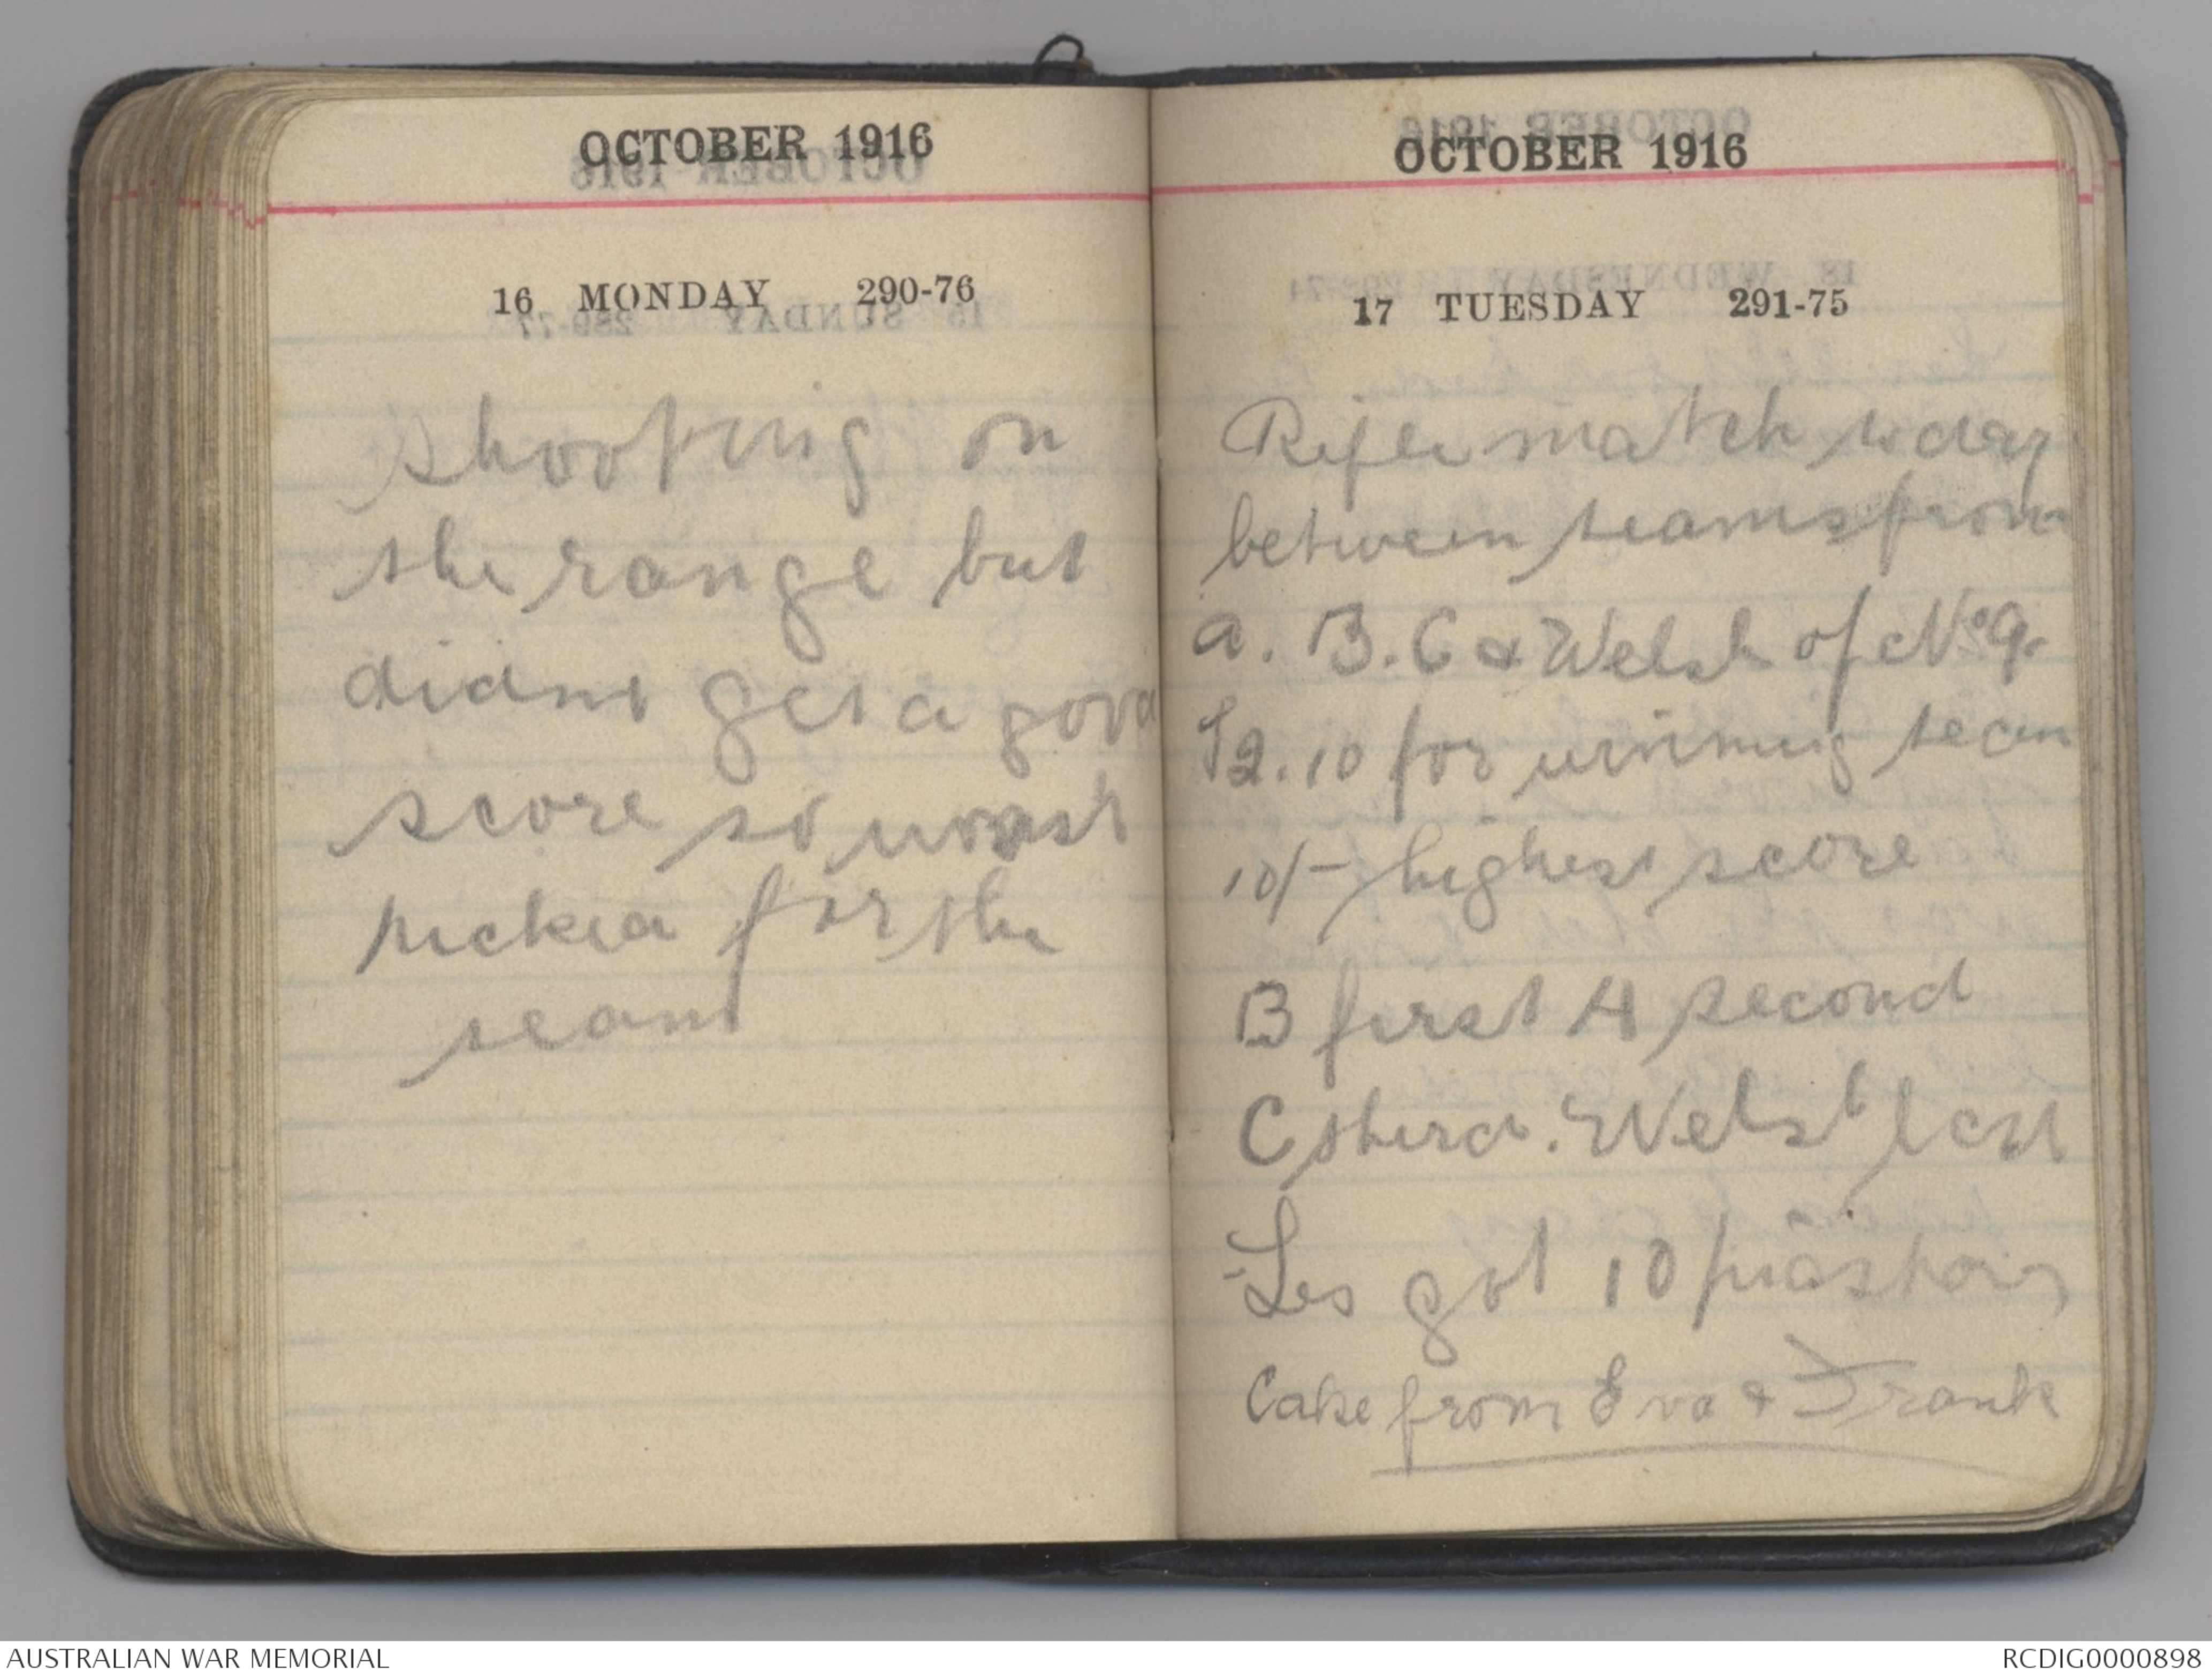 OCTOBER 1916
16 MONDAY 290-76
shooting on
the range but
didnt get a good
score so wasnt
picked for the
team
OCTOBER 1916
17 TUESDAY 291-75
Rifle match today
between teams from
A. B. C & Welsh of No 9.
£2.10 for winning team
10/- highest score
B first A second
C third. Welsh last
Les got 10 piastois
Cake from Eva & Frank
AUSTRALIAN WAR MEMORIAL
RCDIG0000898